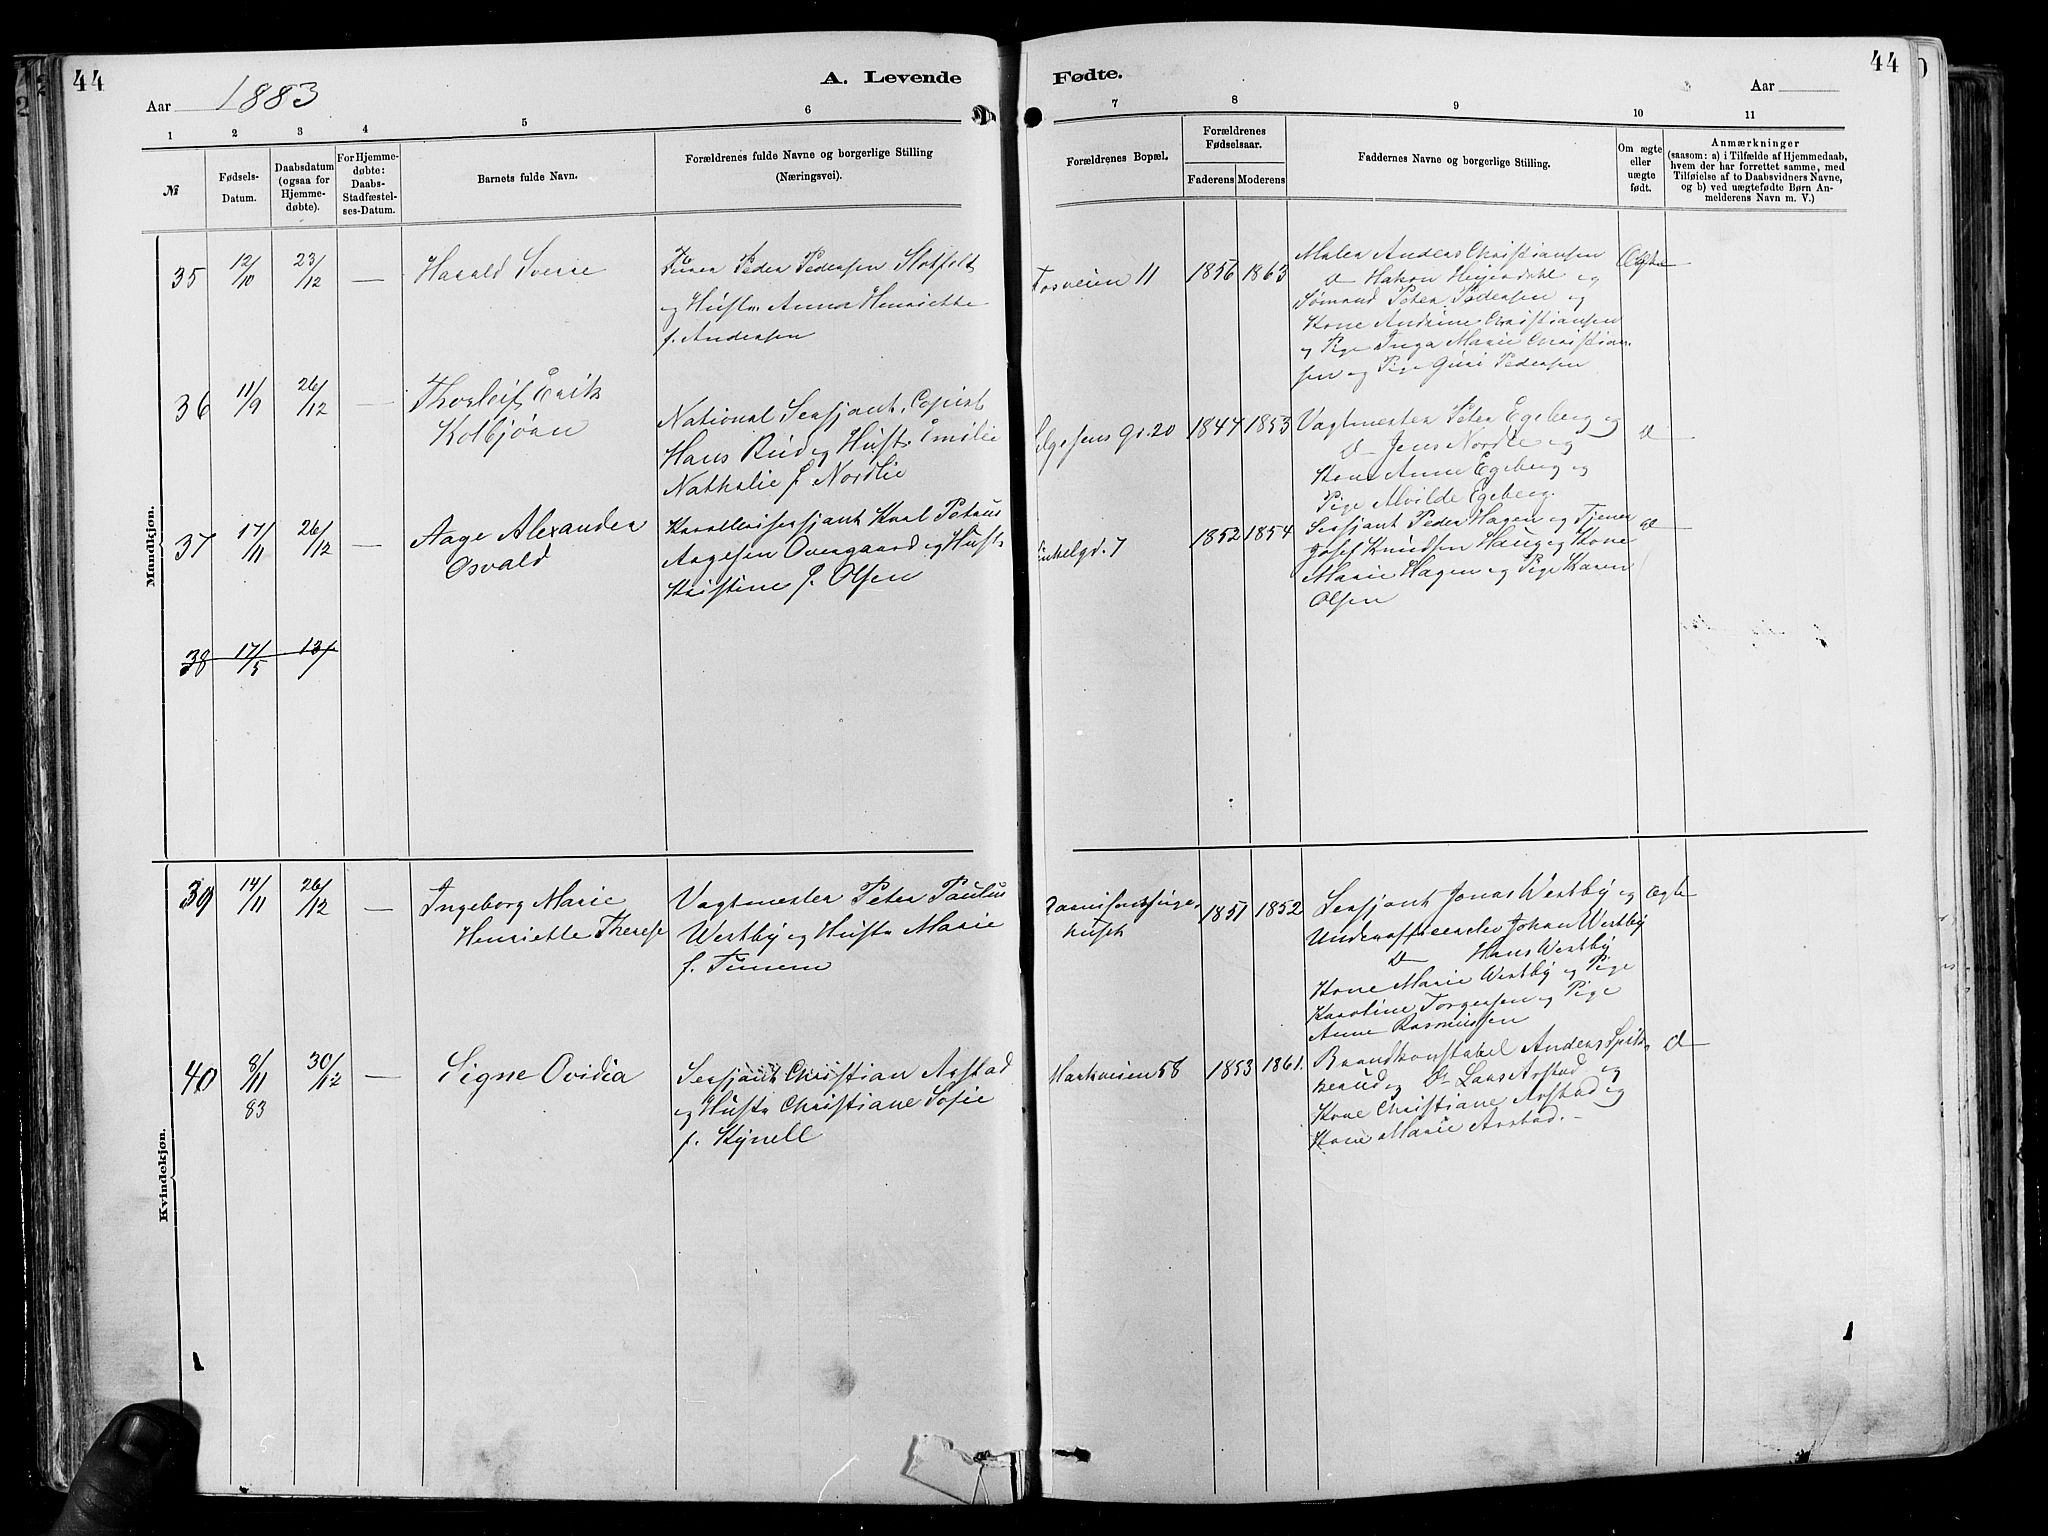 44
A. Levende
Aar 1883
1 2 3 4 5 6
№
Fødsels-
Datum.
Daabsdatum
(ogsaa for
Hjemme-
døbte).
For Hjemme-
døbte:
Daabs-
Stadfæstel-
ses-Datum.
Barnets fulde Navn.
Forældrenes fulde Navne og borgerlige Stilling
(Næringsvei).
Mandkjøn.
35 12/10 23/12 — Harald Sverre
Peder Pedersen
og Hustr. Anna Henriette
f. Andersen
36 11/9 26/12 — Thorleif Erik
Kolbjørn
National Sersjant, Copist
Hans Rud og Hustr. Emilie
Nathalie f. Nordlie
37 17/11 26/12 — Aage Alexander
Osvald
Karl Petrus
Aagesen Overgaard og Hustr.
Kristine f. Olsen
38 17/5 13/
Kvindekjøn.
39 14/11 26/12 — Ingeborg Marie
Henriette Therese
Vagtmester Peter Paulus
Westby og Hustr. Marie
f.
40 8/11 30/12 — Signe Ovidia
83
Sersjant Christian Aastad
og Hustr. Christiane Sofie
f. Kynell
44
Fødte.
Aar
7 8 9 10 11
Forældrenes Bopæl.
Forældrenes
Fødselsaar.
Faderens Moderens
Faddernes Navne og borgerlige Stilling.
Om ægte
eller
uægte
født.
Anmærkninger
(saasom: a) i Tilfælde af Hjemmedaab,
hvem der har forrettet samme, med
Tilføielse af to Daabsvidners Navne,
og b) ved uægtefødte Børn An-
melderens Navn m. V.)
11 1856 1863
Maler Anders Christiansen
Hakon og
Sømand Peter Pedersen og
Kone Andrine Christiansen
og Pige Inga Marie Christian-
sen og Pige Guri Pedersen
Ægte
Gd. 20 1847 1853
Vagtmester Peter Egeberg og
Jens Nordlie og
Kone Anne Egeberg og
Pige Alvilde Egeberg.
7 1852 1854
Sersjant Peder Hagen og Tjener
Josef Knudsen Haug og Kone
Marie Hagen og Pige Karen
Olsen
1851 1852
Sersjant Jonas Westby og
Johan Westby
Hans Westby
Kone Marie Westby og Pige
Karoline Torgersen og Pige
Anne Rasmussen
Ægte
Markveien 58 1853 1861.
Brandkonstabel Anders
og Lars Aastad og
Kone Christiane Aastad og
Kone Marie Aastad. —